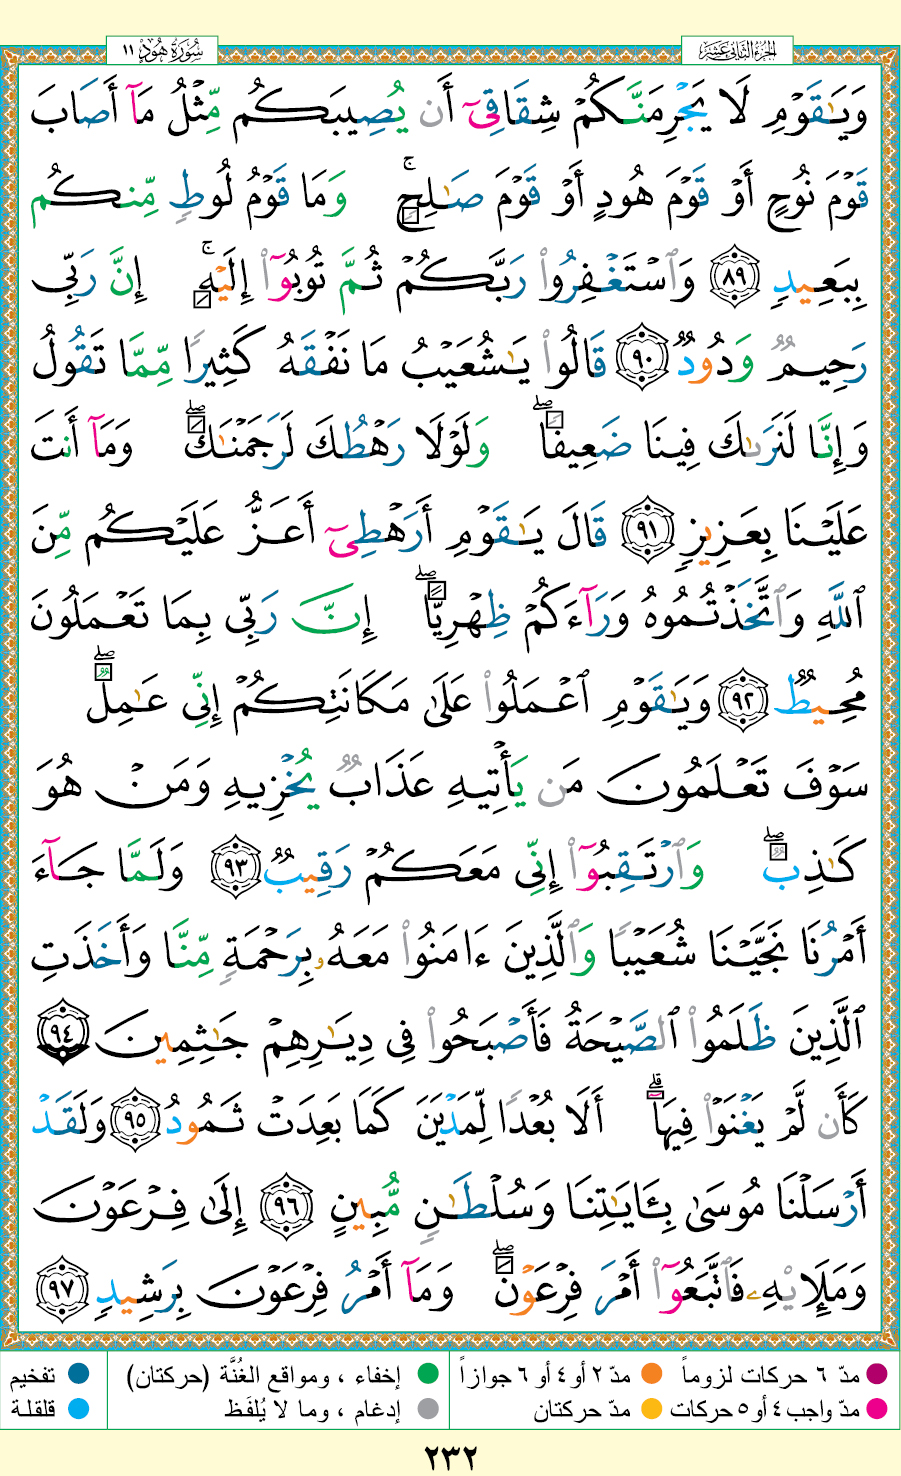 سُورَةُ هُودٍ ١١
الجزء الثاني عشر
وَيَـٰقَوْمِ لَا يَجْرِمَنَّكُمْ شِقَاقِىٓ أَن يُصِيبَكُم مِّثْلُ مَآ أَصَابَ
قَوْمَ نُوحٍ أَوْ قَوْمَ هُودٍ أَوْ قَوْمَ صَـٰلِحٍ ۚ وَمَا قَوْمُ لُوطٍ مِّنكُم
بِبَعِيدٍ ٨٩ وَٱسْتَغْفِرُوا۟ رَبَّكُمْ ثُمَّ تُوبُوٓا۟ إِلَيْهِ ۚ إِنَّ رَبِّى
رَحِيمٌ وَدُودٌ ٩٠ قَالُوا۟ يَـٰشُعَيْبُ مَا نَفْقَهُ كَثِيرًا مِّمَّا تَقُولُ
وَإِنَّا لَنَرَىٰكَ فِينَا ضَعِيفًا ۖ وَلَوْلَا رَهْطُكَ لَرَجَمْنَـٰكَ ۖ وَمَآ أَنتَ
عَلَيْنَا بِعَزِيزٍ ٩١ قَالَ يَـٰقَوْمِ أَرَهْطِىٓ أَعَزُّ عَلَيْكُم مِّنَ
ٱللَّهِ وَٱتَّخَذْتُمُوهُ وَرَآءَكُمْ ظِهْرِيًّا ۖ إِنَّ رَبِّى بِمَا تَعْمَلُونَ
مُحِيطٌ ٩٢ وَيَـٰقَوْمِ ٱعْمَلُوا۟ عَلَىٰ مَكَانَتِكُمْ إِنِّى عَـٰمِلٌ ۖ
سَوْفَ تَعْلَمُونَ مَن يَأْتِيهِ عَذَابٌ يُخْزِيهِ وَمَنْ هُوَ
كَـٰذِبٌ ۖ وَٱرْتَقِبُوٓا۟ إِنِّى مَعَكُمْ رَقِيبٌ ٩٣ وَلَمَّا جَآءَ
أَمْرُنَا نَجَّيْنَا شُعَيْبًا وَٱلَّذِينَ ءَامَنُوا۟ مَعَهُۥ بِرَحْمَةٍ مِّنَّا وَأَخَذَتِ
ٱلَّذِينَ ظَلَمُوا۟ ٱلصَّيْحَةُ فَأَصْبَحُوا۟ فِى دِيَـٰرِهِمْ جَـٰثِمِينَ ٩٤
كَأَن لَّمْ يَغْنَوْا۟ فِيهَآ ۗ أَلَا بُعْدًا لِّمَدْيَنَ كَمَا بَعِدَتْ ثَمُودُ ٩٥ وَلَقَدْ
أَرْسَلْنَا مُوسَىٰ بِـَٔايَـٰتِنَا وَسُلْطَـٰنٍ مُّبِينٍ ٩٦ إِلَىٰ فِرْعَوْنَ
وَمَلَإِي۟هِۦ فَٱتَّبَعُوٓا۟ أَمْرَ فِرْعَوْنَ ۖ وَمَآ أَمْرُ فِرْعَوْنَ بِرَشِيدٍ ٩٧
مدّ ٦ حركات لزوماً مدّ ٢ أو ٤ أو ٦ جوازاً إخفاء ، ومواقع الغُنَّة (حركتان) تفخيم
مدّ واجب ٤ أو ٥ حركات مدّ حركتان إدغام ، وما لا يُلفَظ قلقلة
٢٣٢